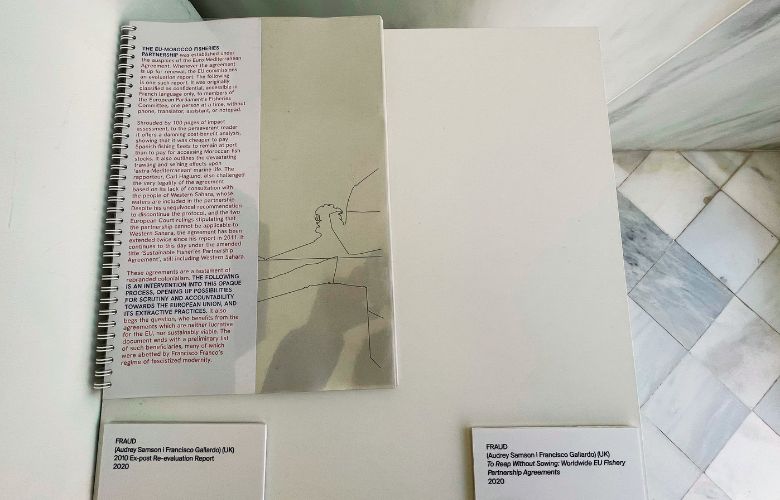 THE EU-MOROCCO FISHERIES
PARTNERSHIP was established under
the auspices of the Euro-Mediterranean
Agreement. Whenever the agreement
is up for renewal, the EU commissions
an evaluation report. The following
is one such report. It was originally
classified as confidential, accessible in
French language only, to members of
the European Parliament's Fisheries
Committee, one person at a time, without
phone, translator, assistant, or notepad.
Shrouded by 100 pages of impact
assessment, to the perseverant reader
it offers a damning cost-benefit analysis,
showing that it was cheaper to pay
Spanish fishing fleets to remain at port
than to pay for accessing Moroccan fish
stocks. It also outlines the devastating
trawling and seining effects upon
'extra-Mediterranean' marine life. The
rapporteur, Carl Haglund, also challenged
the very legality of the agreement
based on its lack of consultation with
the people of Western Sahara, whose
waters are included in the partnership.
Despite his unequivocal recommendation
to discontinue the protocol, and the two
European Court rulings stipulating that
the partnership cannot be applicable to
Western Sahara, the agreement has been
extended twice since his report in 2011. It
continues to this day under the amended
title 'Sustainable Fisheries Partnership
Agreement', still including Western Sahara.
These agreements are a testament of
rebranded colonialism. THE FOLLOWING
IS AN INTERVENTION INTO THIS OPAQUE
PROCESS, OPENING UP POSSIBILITIES
FOR SCRUTINY AND ACCOUNTABILITY
TOWARDS THE EUROPEAN UNION, AND
ITS EXTRACTIVE PRACTICES. It also
begs the question, who benefits from the
agreements which are neither lucrative
for the EU, nor sustainably viable. The
document ends with a preliminary list
of such beneficiaries, many of which
were abetted by Francisco Franco's
regime of fascistized modernity.
FRAUD
(Audrey Samson i Francisco Gallardo) (UK)
2010 Ex-post Re-evaluation Report
2020
FRAUD
(Audrey Samson i Francisco Gallardo) (UK)
To Reap Without Sowing: Worldwide EU Fishery
Partnership Agreements
2020